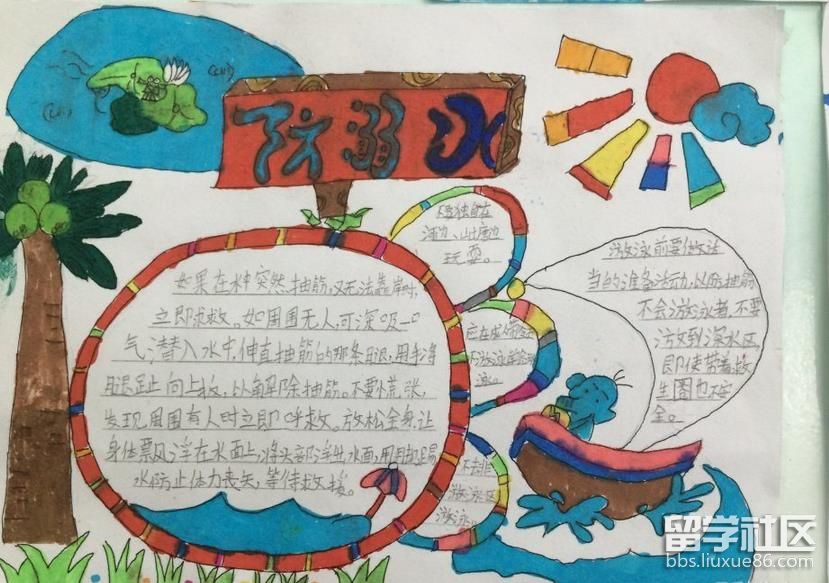 防溺水
如果在水中突然抽筋,又无法靠岸时,
立即求救。如周围无人,可深吸一口
气潜入水中,伸直抽筋的那条腿,用手将
脚趾向上扳,以解除抽筋。不要慌张,
发现周围有人时立即呼救。放松全身,让
身体票风浮在水面上,将头部浮出水面,用脚踢
水,防止体力丧失,等待救援。
不要独自在
河边、山塘边
玩耍。
不去非
游泳区
游泳。
游泳前要做适
当的准备活动,以防抽筋
不会游泳者,不要
游到深水区,
即使带着救
生圈也不安
全。
留学社区
bbs.liuxue86.com